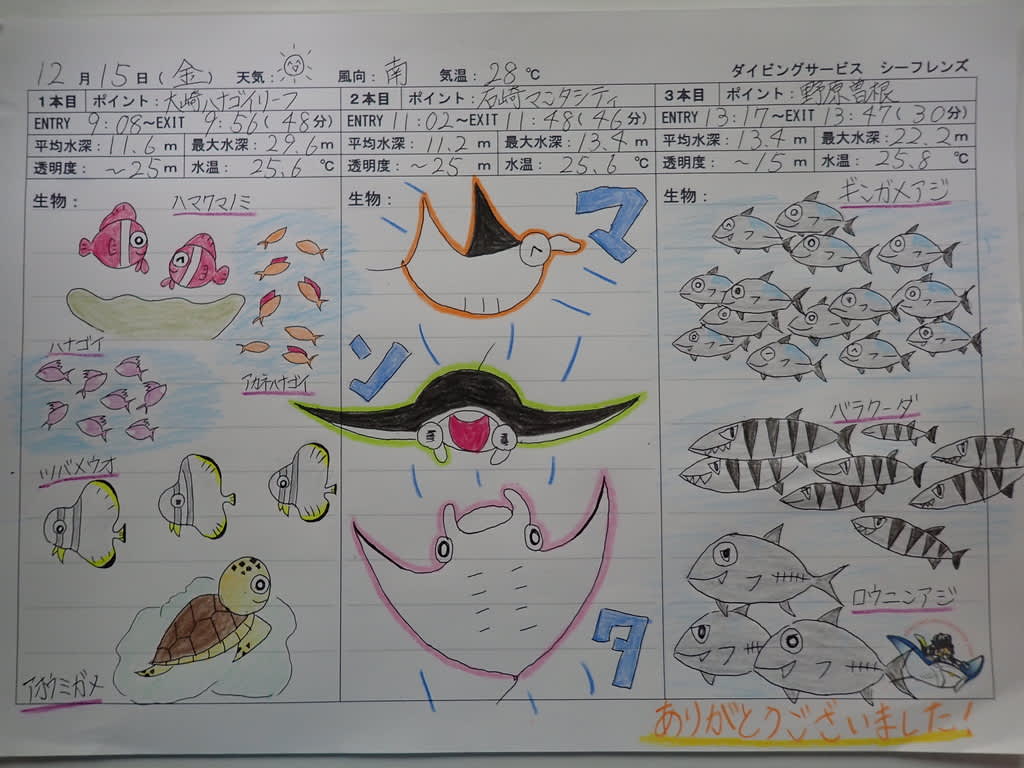 12月15日(金) 天気： 風向：南 気温：28℃ ダイビングサービス シーフレンズ
1本目 ポイント：大崎ハナゴイリーフ
ENTRY 9:08〜EXIT 9:56(48分)
平均水深：11.6m 最大水深：29.6m
透明度：〜25m 水温：25.6℃
生物：
ハマクマノミ
ハナゴイ
アカネハナゴイ
ツバメウオ
アオウミガメ
2本目 ポイント：石崎マンタシティ
ENTRY 11:02〜EXIT 11:48(46分)
平均水深：11.2m 最大水深：13.4m
透明度：〜25m 水温：25.6℃
生物：
マ
ン
タ
3本目 ポイント：野原曽根
ENTRY 13:17〜EXIT 13:47(30分)
平均水深：13.4m 最大水深：22.2m
透明度：〜15m 水温：25.8℃
生物：
ギンガメアジ
バラクーダ
ロウニンアジ
ありがとうございました!